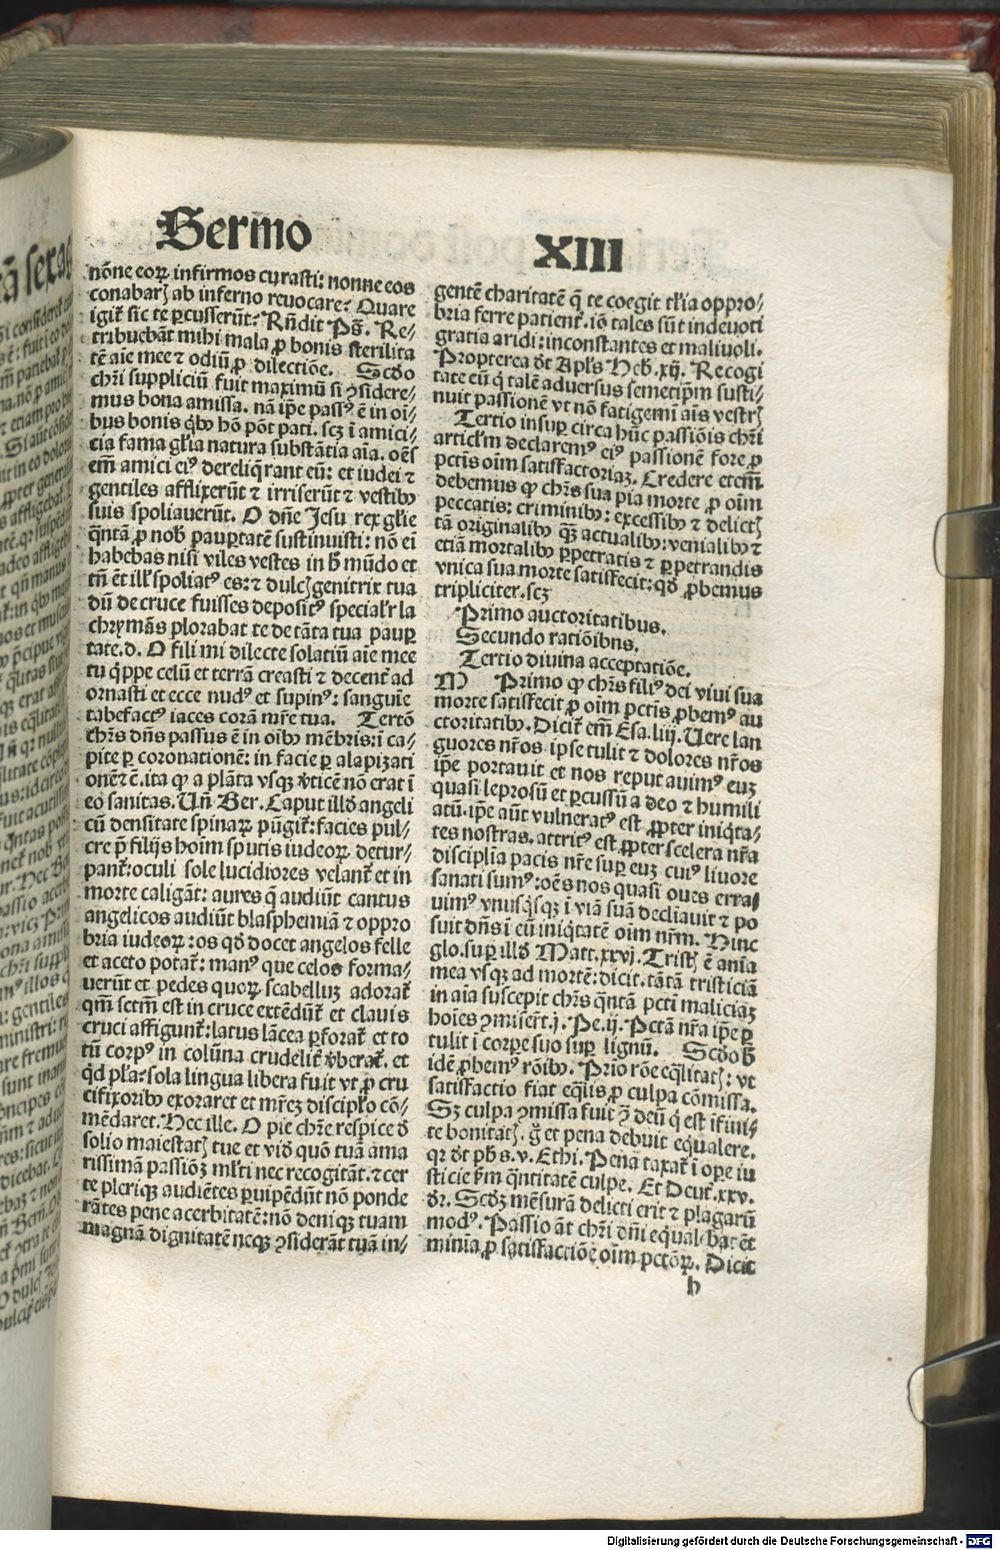 Sermo XIII
nōne eoꝝ infirmos curasti: nonne eos
conabarꝭ ab inferno reuocare? Quare
igit̉ sic te ꝑcusserūt? Rñdit Ps̄. Re-
tribuebāt mihi mala ꝓ bonis sterilita
tē aīe mee ⁊ odiū ꝓ dilectiōe. Scďo
chr̄i suppliciū fuit maximū si ꝯsidere-
mus bona amissa. nā ip̄e passꝰ ē in oī-
bus bonis q̄bꝫ hō pōt pati. scꝫ ī amici-
cia fama gl̄ia natura substātia aīa. oēs
em̄ amici eiꝰ dereliq̄rant eū: et iudei ⁊
gentiles afflixerūt ⁊ irriserūt ⁊ vestibꝫ
suis spoliauerūt. O dn̄e Jesu rex gl̄ie
q̄ntā ꝓ nob̄ pauꝑtatē sustinuisti: nō eī
habebas nisi viles vestes in ħ mūdo et
tn̄ ēt ill̄ spoliatꝰ es: ⁊ dulcꝭ genitrix tua
dū de cruce fuisses depositꝰ special̉r la
chrymās plorabat te de tāta tua pauꝑ
tate. d. O fili mi dilecte solatiū aīe mee
tu q̄ppe celū et terrā creasti ⁊ decent̉ ad
ornasti et ecce nudꝰ et supinꝰ: sanguīe
tabefactꝰ iaces corā mr̄e tua. Tertō
chr̄s dn̄s passus ē in oībꝫ mēbris: ī ca-
pite ꝑ coronationē: in facie ꝑ alapizati
onē ⁊ c̄. ita ꝙ a plāta vsqꝫ v̉ticē nō erat ī
eo sanitas. Un̄ Ber. Caput illđ angeli
cū densitate spinaꝝ pūgit̉: facies pul-
cre p̄ filijs hoīm sputis iudeoꝝ detur-
pant̉: oculi sole lucidiores velant̉ et in
morte caligāt: aures q̄ audiūt cantus
angelicos audiūt blasphemiā ⁊ oppro
bria iudeoꝝ: os qđ docet angelos felle
et aceto potat̉: manꝰ que celos forma-
uerūt et pedes quoꝝ scabellū adorat̉
qm̄ sctm̄ est in cruce extēdūt̉ et clauis
cruci affigunt̉: latus lācea ꝑforat̉ et to
tū corpꝰ in colūna crudelit̉ v̉berat̉. et
qđ pl̉a: sola lingua libera fuit vt ꝓ cru
cifixoribꝫ exoraret et mr̄eꝫ discipl̉o cō-
mēdaret. Hec ille. O pie chr̄e respice đ
solio maiestatꝭ tue et viđ quō tuā ama
rissimā passiōꝫ ml̉ti nec recogitāt. ⁊ cer
te pleriqꝫ audiētes ꝑuipēdūt nō ponde
rātes pene acerbitatē: nō deniqꝫ tuam
magnā dignitatē neqꝫ ꝯsiderāt tuā in-
gentē charitatē q̄ te coegit tl̉ia oppro-
bria ferre patient̉. iō tales sūt indeuoti
gratia aridi: inconstantes et maliuoli.
Propterea đt Apl̄s Heb̄. xij. Recogi
tate eū q̄ talē aduersus semetip̄m susti-
nuit passionē vt nō fatigemī aīs vestrꝭ
Tertio insuꝑ circa hāc passiōis chr̄i
articl̉m declaremꝰ eiꝰ passionē fore ꝓ
pctīs oīm satisfactoriaꝫ. Credere etem̄
debemus ꝙ chr̄s sua pia morte ꝓ oīm
peccatis: criminibꝫ: excessibꝫ ⁊ delictꝭ
tā originalibꝫ q̄ꝫ actualibꝫ: venialibꝫ ⁊
etiā mortalibꝫ ꝑpetratis ⁊ ꝑpetrandis
vnica sua morte satisfecit: qđ ꝓbemus
tripliciter. scꝫ
Primo auctoritatibus.
Secundo ratiōibus.
Tertio diuina acceptatiōe.
M Primo ꝙ chr̄s filiꝰ dei viui sua
morte satisfecit ꝓ oīm pctīs ꝓbemꝰ au
ctoritatibꝫ. Dicit̉ em̄ Esa. liij. Uere lan
guores nr̄os ipse tulit ⁊ dolores nr̄os
ip̄e portauit et nos reputauimꝰ euꝫ
quasi leprosū et ꝑcussū a deo ⁊ humili
atū. ip̄e aūt vulneratꝰ est ꝓpter iniq̄ta-
tes nostras. attritꝰ est ꝓpter scelera nr̄a
disciplīa pacis nr̄e suꝑ euꝫ cuiꝰ liuore
sanati sumꝰ: oēs nos quasi oues erra
uimꝰ vnusq̄sqꝫ ī viā suā decliauit ⁊ po
suit dn̄s ī eū iniq̄tatē oīm nr̄m. Hinc
glo. suꝑ illđ Matt. xxvj. Tristꝭ ē anīa
mea vsqꝫ ad mortē: dicit. tātā tristiciā
in aīa suscepit chr̄s q̄ntā pctī maliciaꝫ
hoīes ꝯmiser̄t. j. Pe. ij. Pctā nr̄a ip̄e ꝑ
tulit ī corꝑe suo suꝑ lignū. Scđo ħ
idē ꝓbemꝰ rōibꝫ. Prīo rōe eq̄litatꝭ: vt
satisfactio fiat eq̄lis ꝓ culpa cōmissa.
Sꝫ culpa ꝯmissa fuit ꝯ̄ deū q̄ est īfini-
te bonitatꝭ. g̊ et pena debuit equalere.
qꝛ đt phs̄. v. Ethi. Pena taxat̉ ī oꝑe iu
sticie ẜm q̄ntitatē culpe. Et Deut̉. xxv.
đr. Scđꝫ mēsurā delicti erit ⁊ plagarū
modꝰ. Passio āt chr̄i dn̄i equal̉ bat ēt
minīa ꝓ satisfactiōe oīm pctōꝝ. Dicit
h
Digitalisierung gefördert durch die Deutsche Forschungsgemeinschaft - DFG